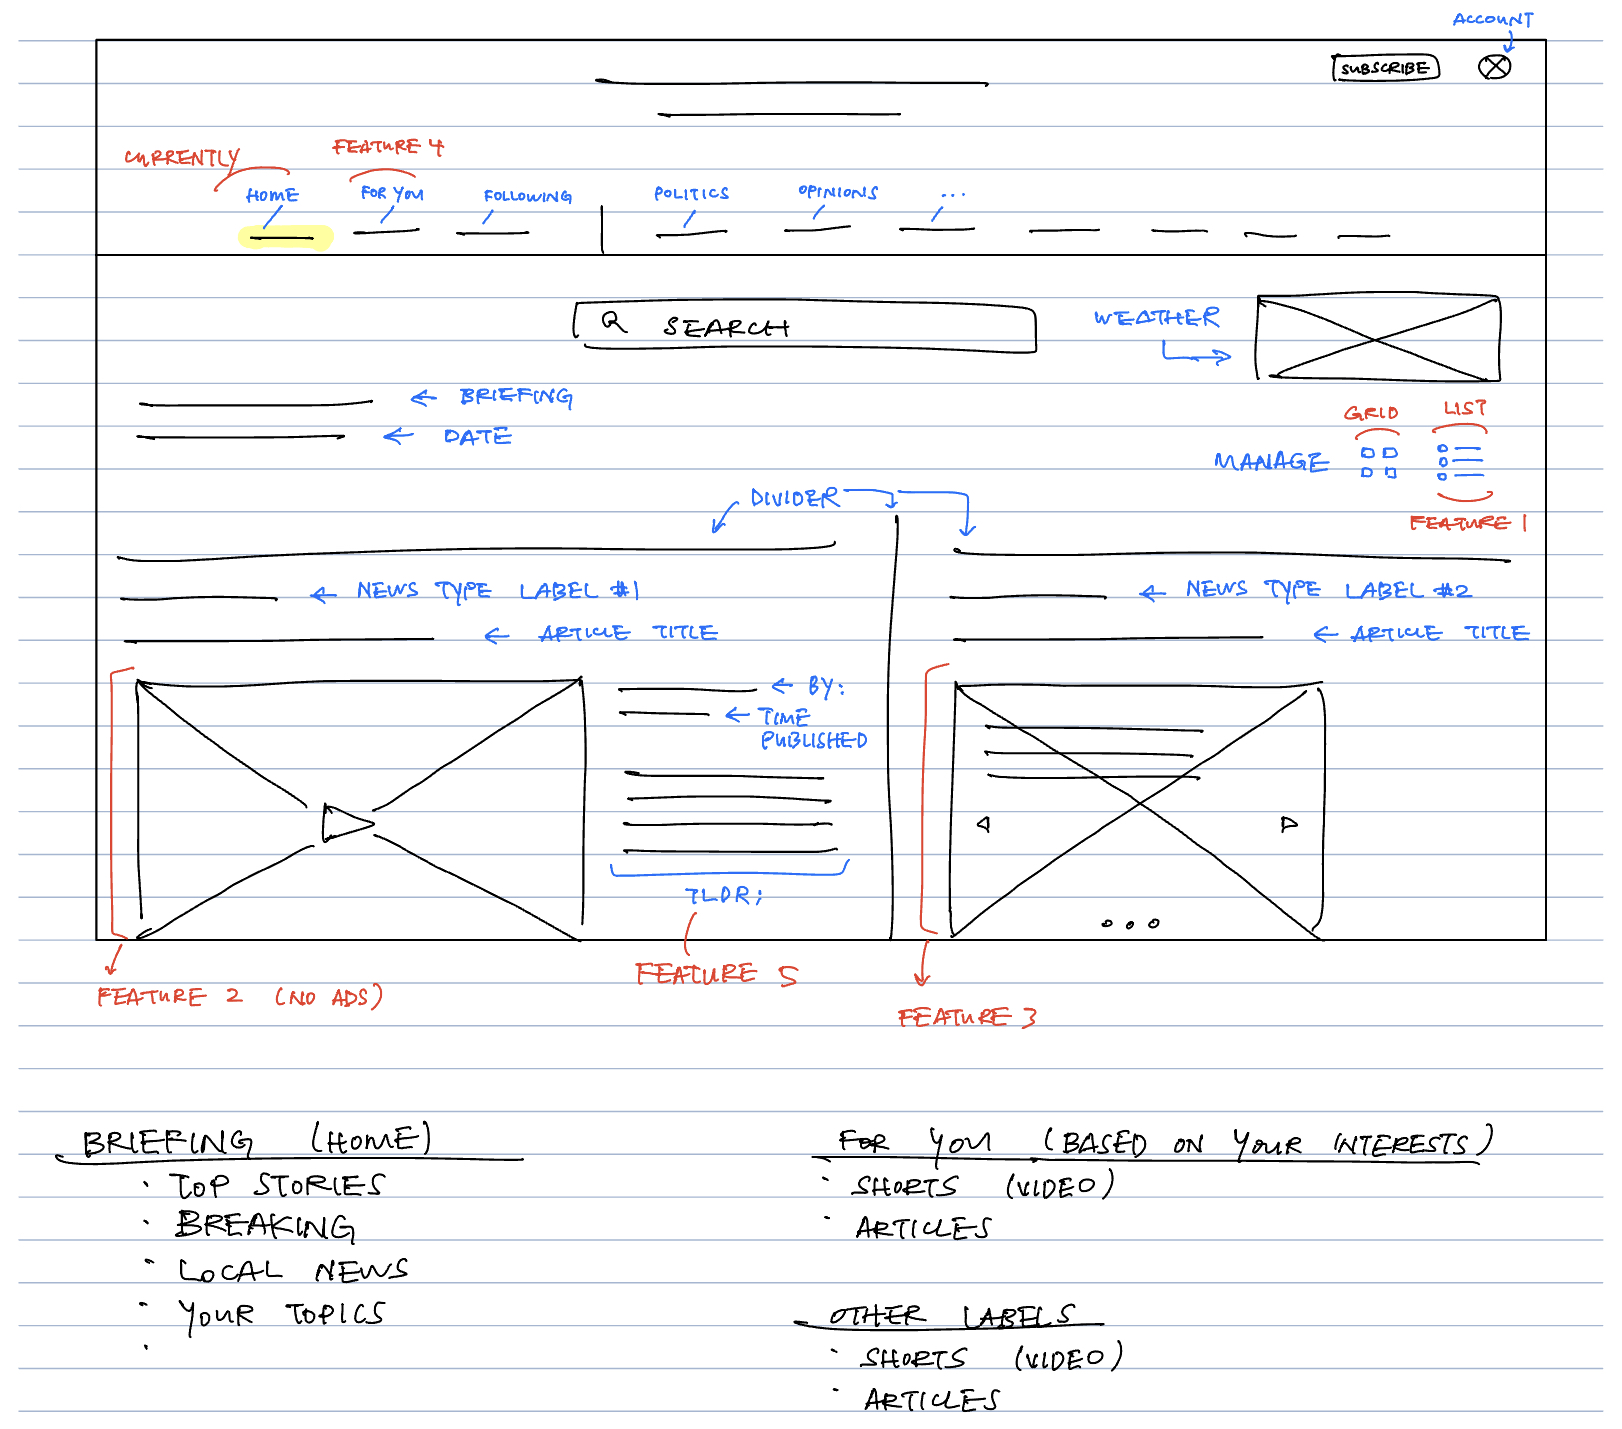 ACCOUNT
SUBSCRIBE
CURRENTLY
FEATURE 4
HOME
FOR YOU
FOLLOWING
POLITICS
OPINIONS
...
SEARCH
WEATHER
BRIEFING
DATE
GRID
LIST
MANAGE
FEATURE 1
DIVIDER
NEWS TYPE LABEL #1
ARTICLE TITLE
NEWS TYPE LABEL #2
ARTICLE TITLE
BY:
TIME
PUBLISHED
TLDR;
FEATURE 5
FEATURE 2 (NO ADS)
FEATURE 3
BRIEFING (HOME)
· TOP STORIES
· BREAKING
· LOCAL NEWS
· YOUR TOPICS
·
FOR YOU (BASED ON YOUR INTERESTS)
· SHORTS (VIDEO)
· ARTICLES
OTHER LABELS
· SHORTS (VIDEO)
· ARTICLES